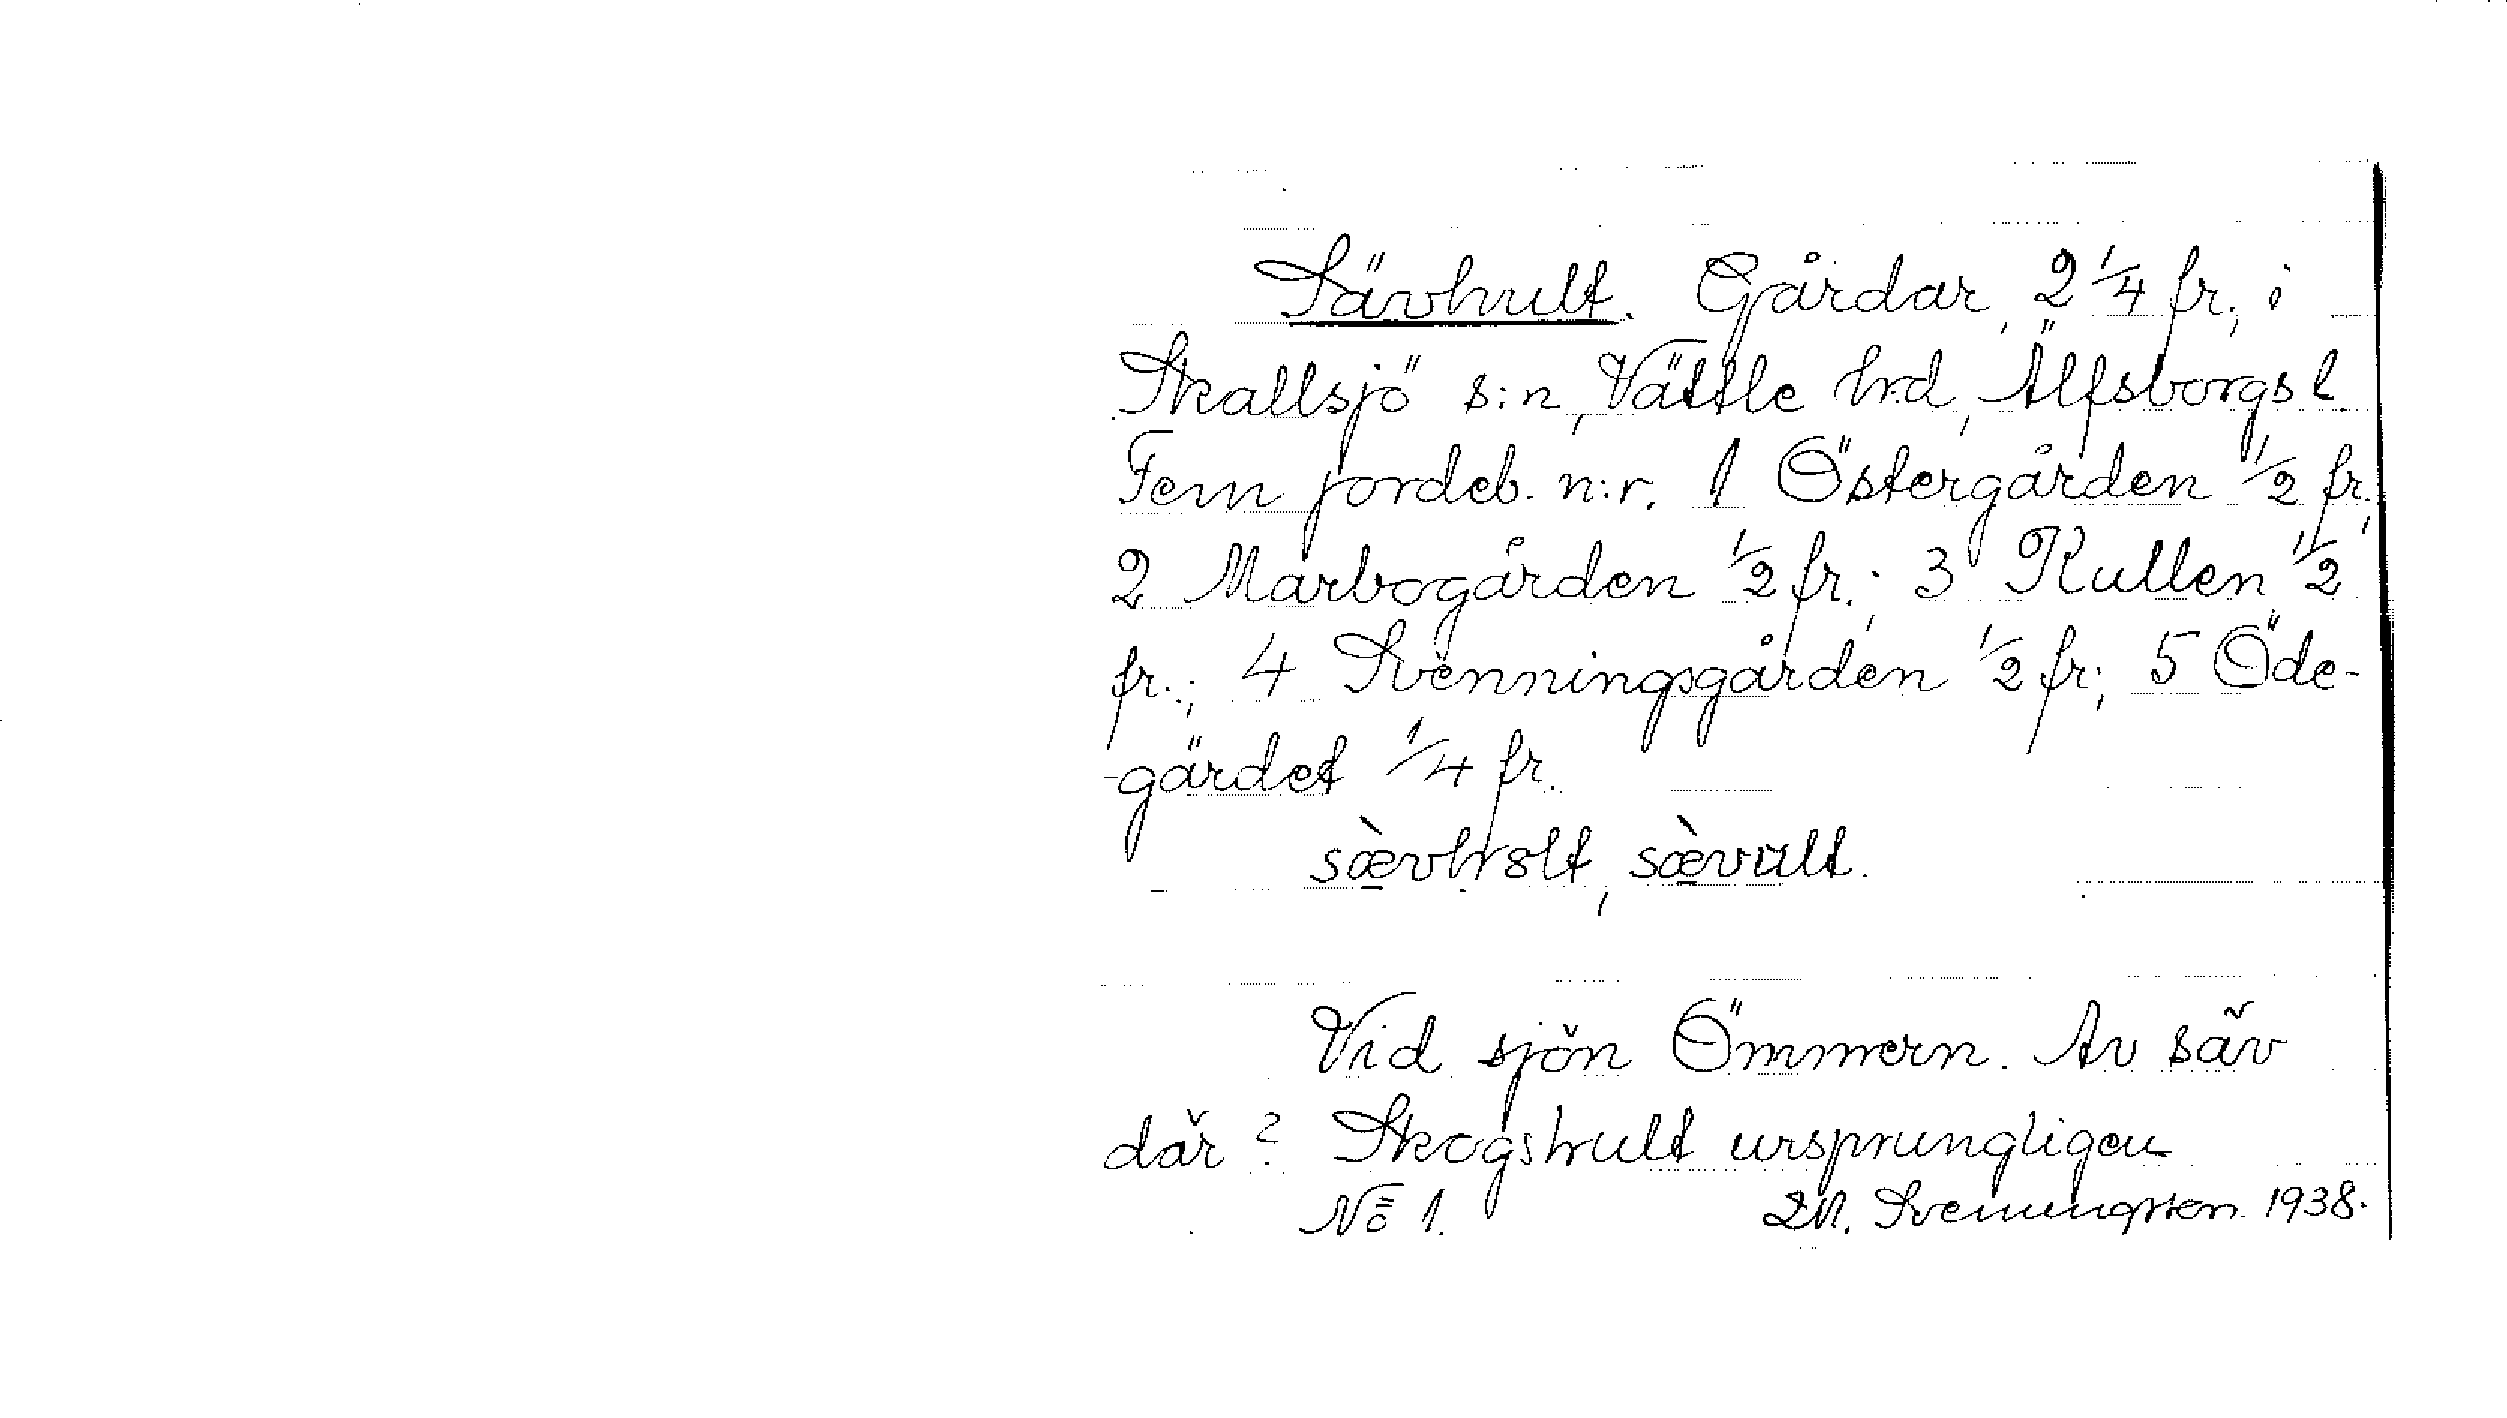 Sävhult. Gårdar, 2 1/4 fr., i
Skallsjö s:n, Vättle hrd, Älfsborgs l.
Fem jordeb. n:r. 1 Östergården 1/2 fr.,
2 Marbogården 1/2 fr.; 3 Kullen 1/2
fr.; 4 Svenningsgården 1/2 fr; 5 Öde-
-gärdet 1/4 fr.
sæ̀vhslt, sæ̀vült.
Vid sjön Ömmern. Av säv
där? Skogshult ursprungligen
No 1. Svenungsson 1938.